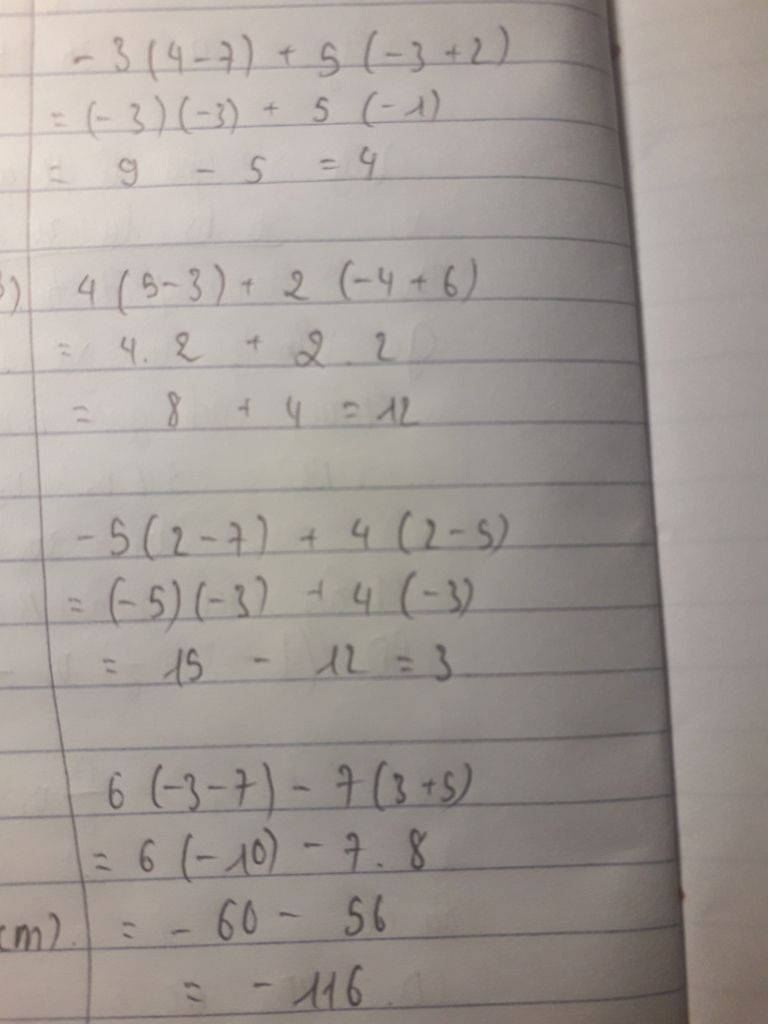 - 3 (4-7) + 5 (-3+2)
= (-3)(-3) + 5 (-1)
= 9 - 5 = 4
) 4 (5-3) + 2 (-4+6)
= 4. 2 + 2. 2
= 8 + 4 = 12
-5 (2-7) + 4 (2-5)
= (-5)(-3) + 4 (-3)
= 15 - 12 = 3
6 (-3-7) - 7 (3+5)
= 6 (-10) - 7. 8
cm). = - 60 - 56
= - 116.